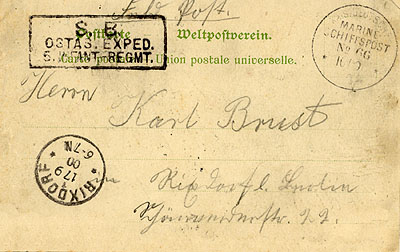 Feld Post.
S. B.
OSTAS. EXPED.
5. INFANT. REGMT.
Postkarte Weltpostverein.
Carte postale Union postale universelle.
MARINE
SCHIFFSPOST
No
Herrn
Karl Brust
Rixdorf b. Berlin
RIXDORF
17 9
00
6-7N